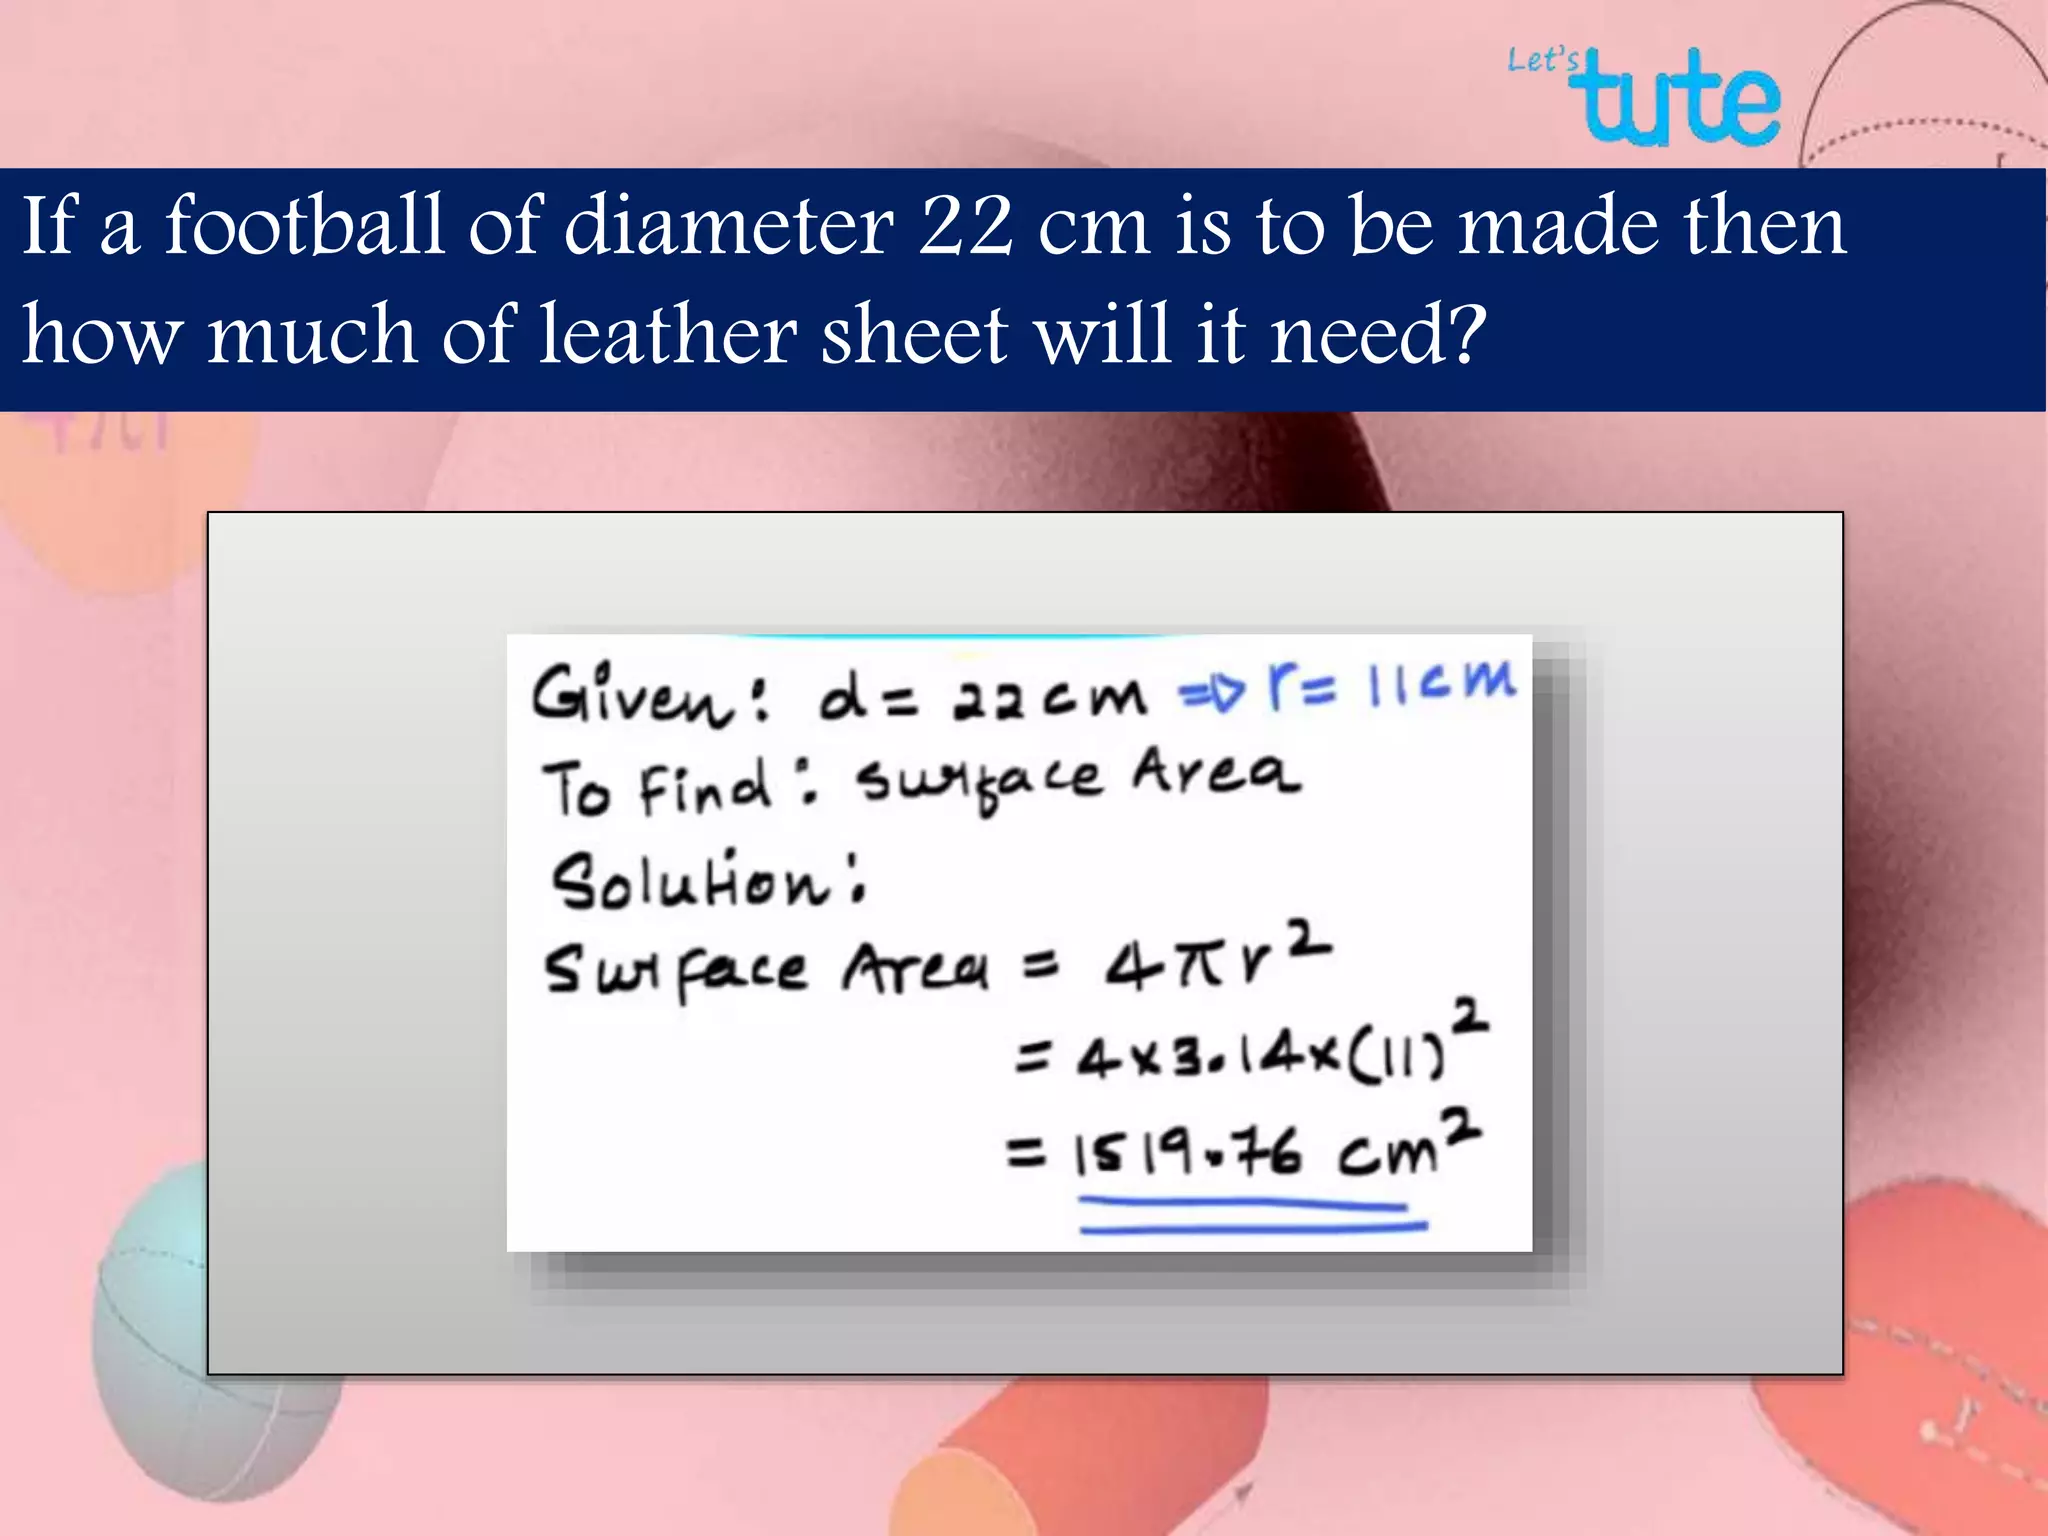 Let's
tute
r
If a football of diameter 22 cm is to be made then
how much of leather sheet will it need?
4πr
Given: d = 22cm ⇒ r = 11cm
To Find: Surface Area
Solution:
Surface Area = 4πr²
= 4×3.14×(11)²
= 1519.76 cm²
r